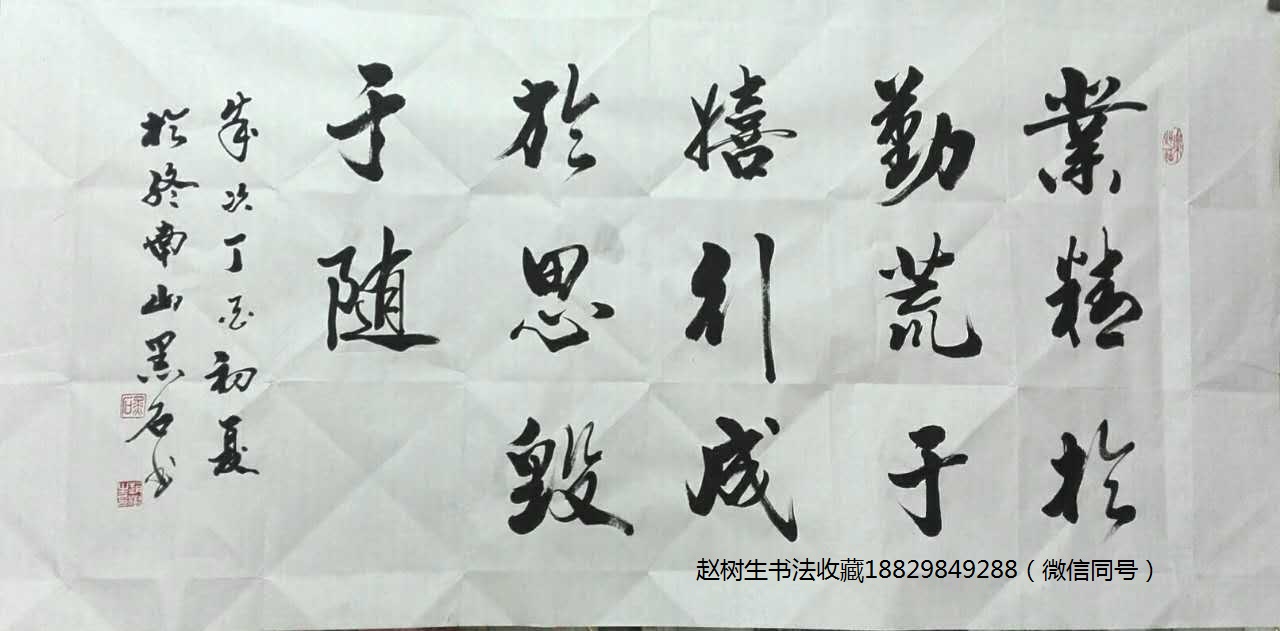 業精於
勤荒于
嬉引成
於思毀
于随
歲次丁酉初夏
於終南山黑石书
赵树生书法收藏18829849288（微信同号）